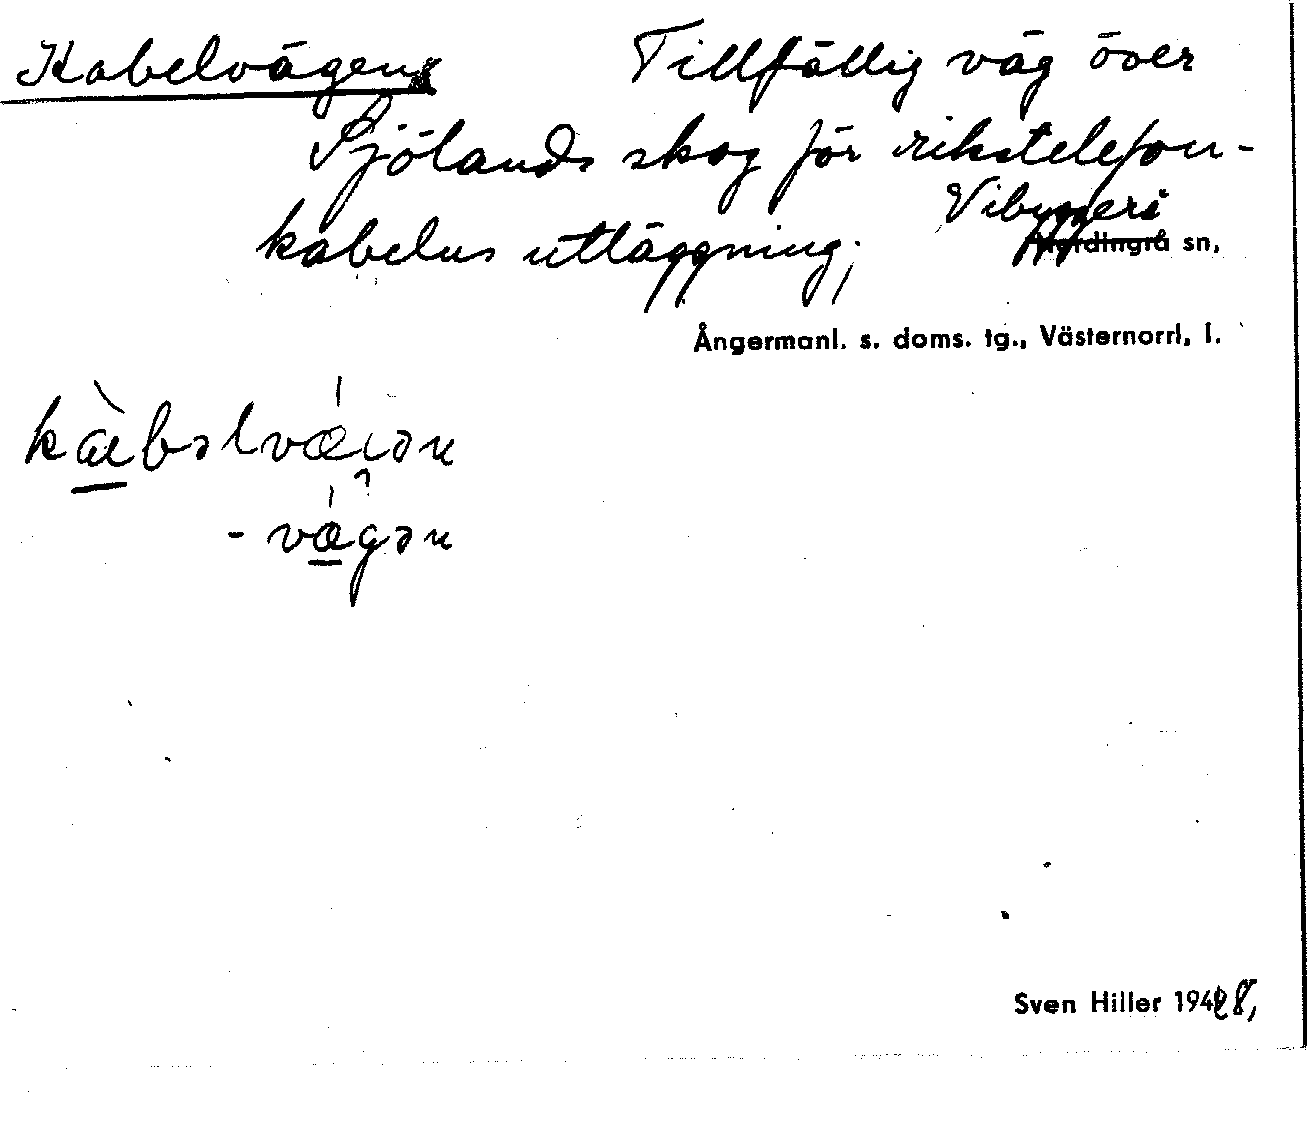 Kabelvägen Tillfällig väg över
Själands skog för rikstelefon-
kabelns utläggning;
Vibyggerå
Nordingrå sn,
Ångermanl. s. doms. tg., Västernorrl. l.
-vägən
Sven Hiller 1948,